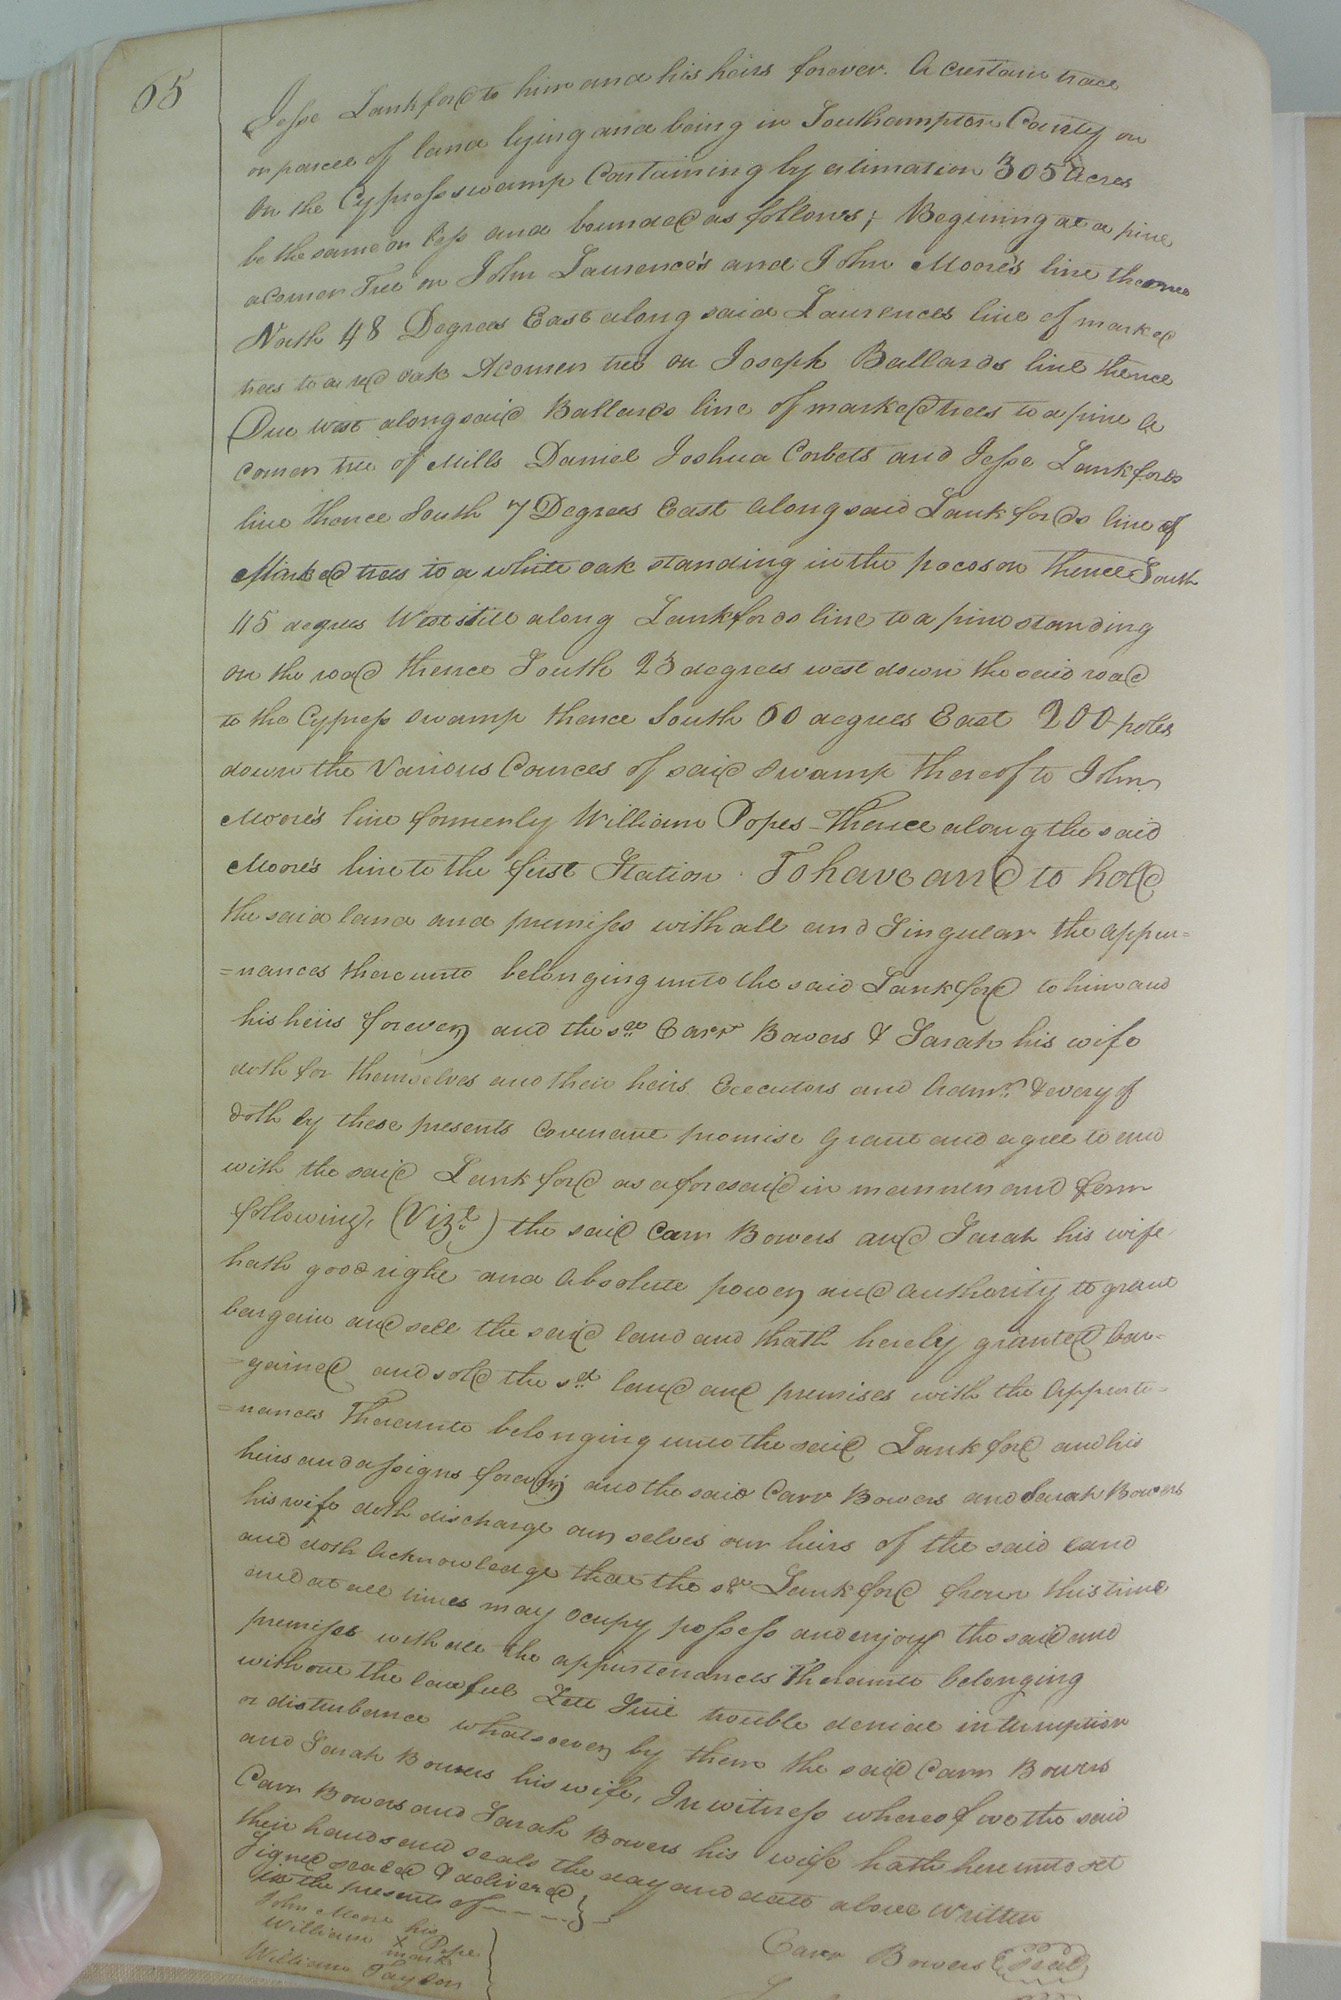 65
Jesse Lankford to him and his heirs forever. A certain trace
or parcel of land lying and being in Southampton County on
On the Cypress swamp Containing by estimation 305 Acres
be the same or less and bounded as follows; Begining at a pine
a Corner Tree on John Laurence's and John Moore's line thence
North 48 Degrees East along said Laurences line of marked
trees to a red oak A corner tree on Joseph Ballards line thence
Due West along said Ballards line of marked trees to a pine A
corner tree of Mills Daniel Joshua Corbets and Jesse Lankfords
line thence South 7 Degrees East along said Lankfords line of
Marked trees to a white oak standing in the pocoson Thence South
45 degrees West still along Lankfords line to a pine standing
On the road thence South 23 degrees west down the said road
to the Cypress swamp thence South 60 degrees East 200 poles
down the Various Cources of said swamp thereof to John
Moore's line formerly William Popes - Thence along the said
Moore's line to the first Station. To have and to hold
the said land and premises with all and Singular the appur=
=nances thereunto belonging unto the said Lankford to him and
his heirs forever, and the sd Carr Bowers & Sarah his wife
doth for themselves and their heirs Executors and Admrs & every of
doth by these presents Covenant promise Grant and agree to and
with the said Lankford as aforesaid in manner and form
following, (Vizt) the said Carr Bowers and Sarah his wife
hath good right and Absolute power, and authority to grant
bargain and sell the said land and hath hereby granted bar=
=gained and sold the sd land and premises with the Appurte=
=nances Thereunto belonging unto the said Lankford and his
heirs and assigns forever; and the said Carr Bowers and Sarah Bowers
his wife doth discharge our selves our heirs of the said land
and doth Acknowledge that the sd Lankford from this time
and at all times may ocupy possess and enjoy the said and
premises with all the appurtenances Thereunto belonging
without the lawful Lett Suit trouble denial interruption
or disturbance whatsoever, by them the said Carr Bowers
and Sarah Bowers his wife, In witness whereof we the said
Carr Bowers and Sarah Bowers his wife hath hereunto set
their hands and seals the day and date above Written
Signed sealed & delivered
in the presents of
John More
William his X mark Pope
William Taylor
Carr Bowers (Seal)